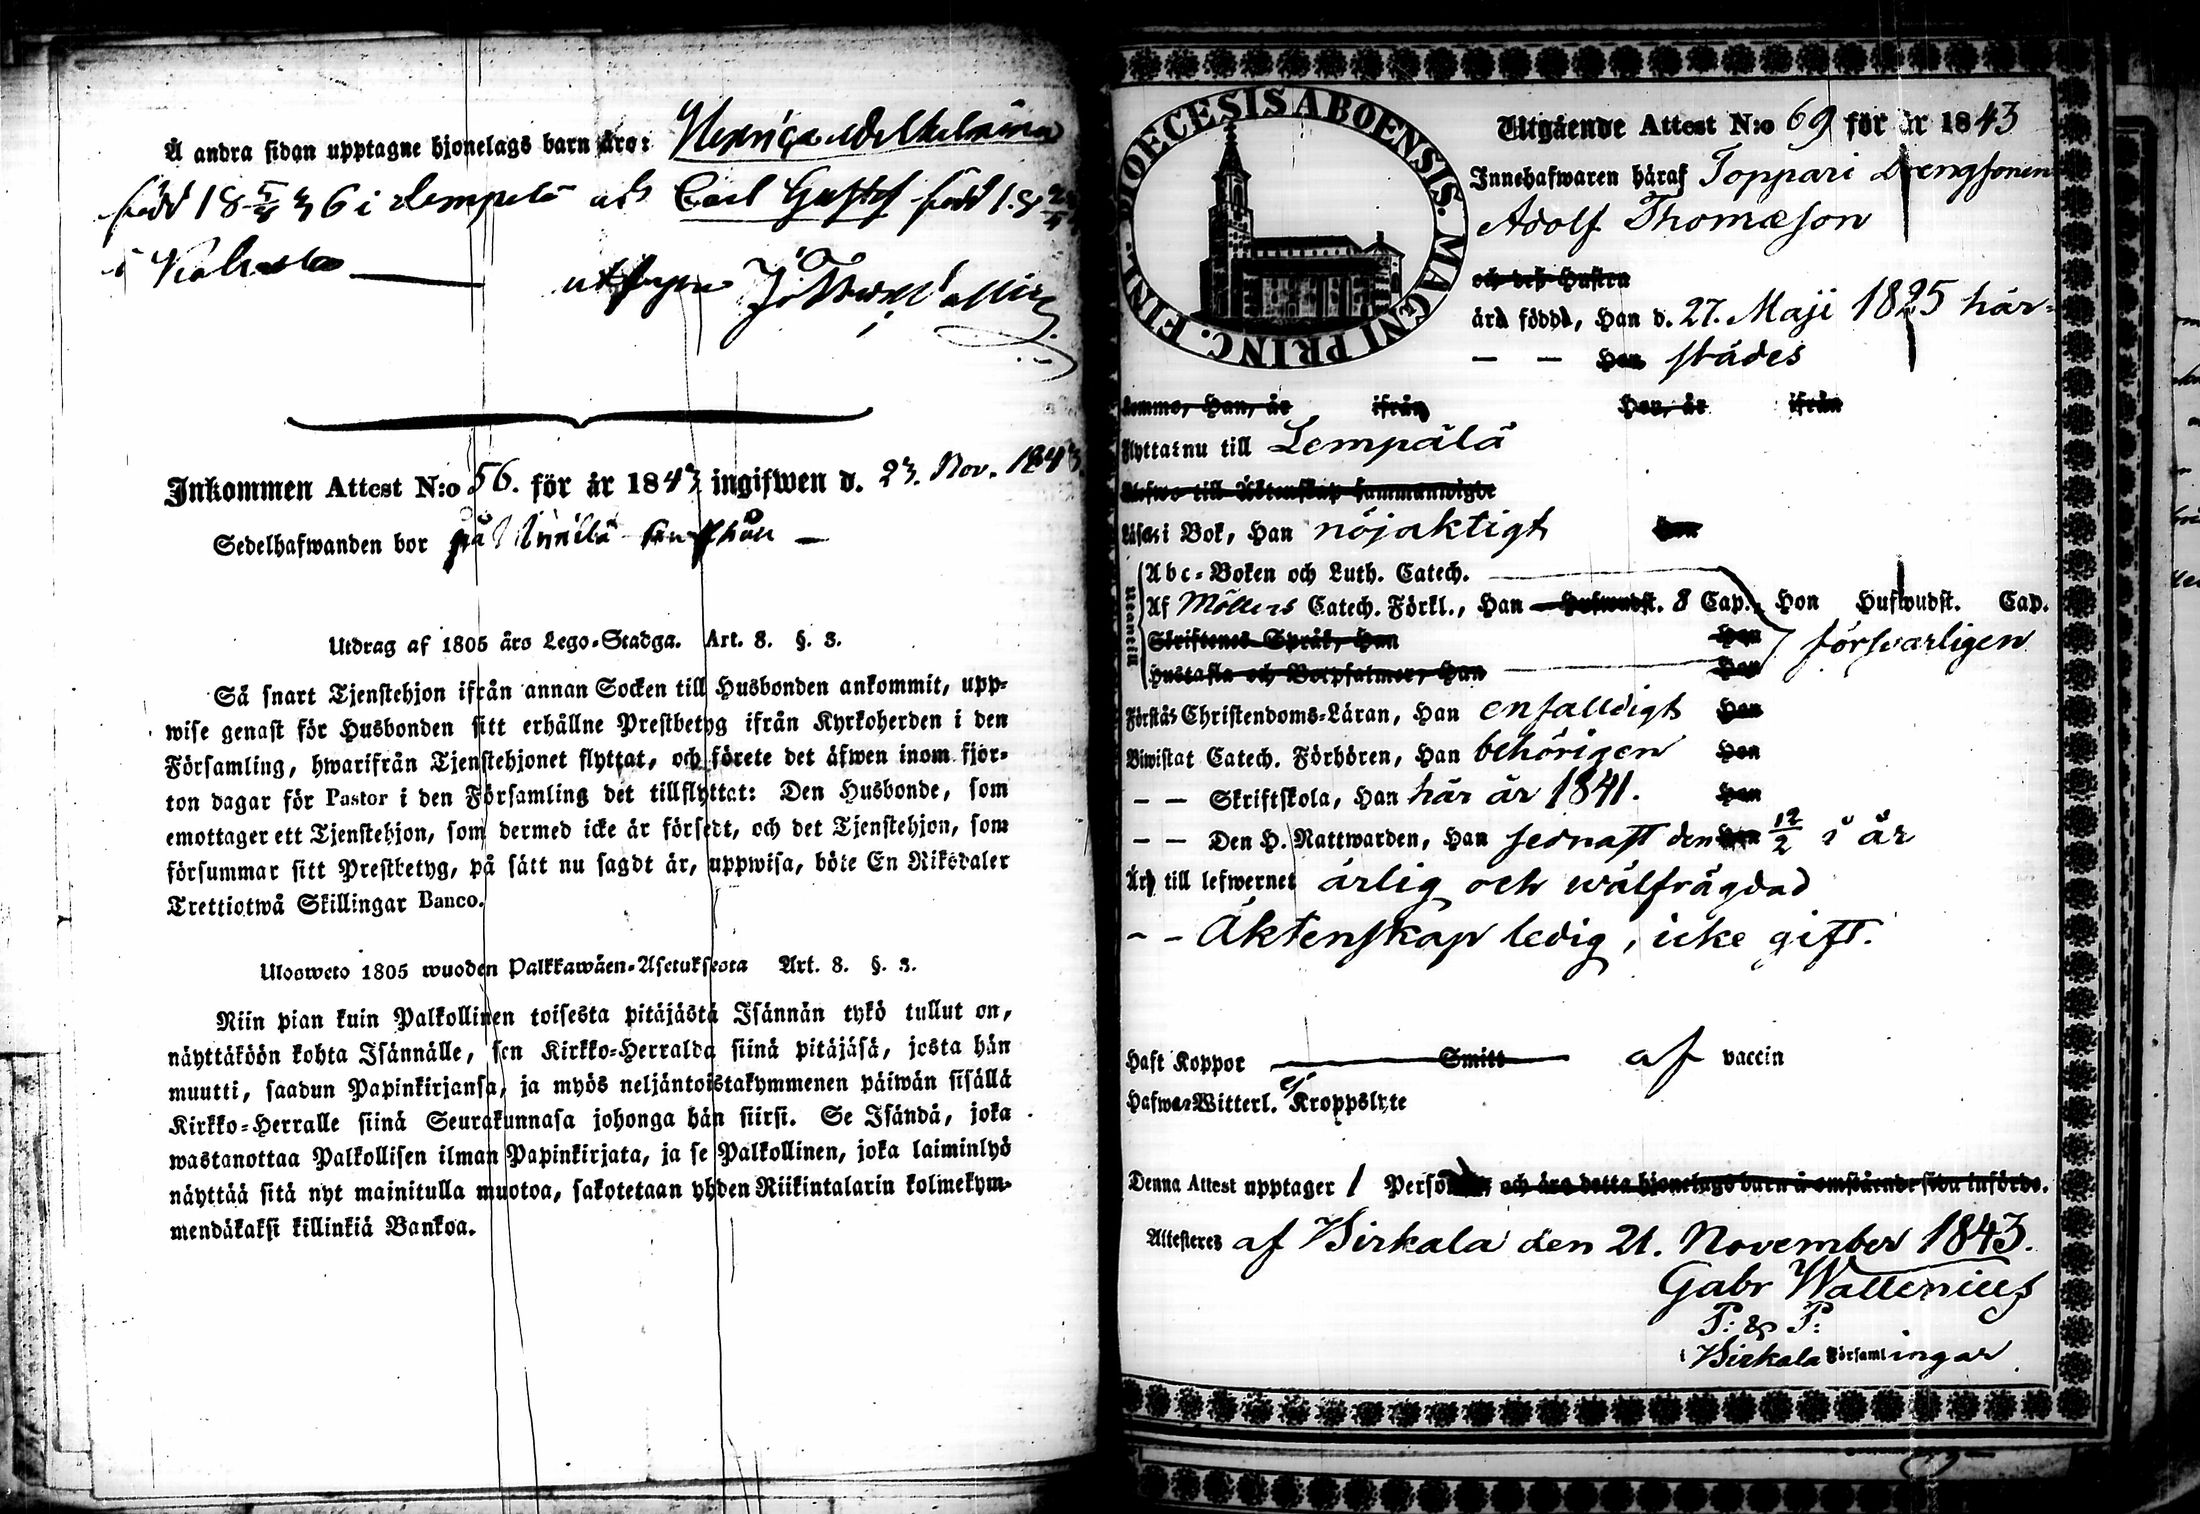 Å andra sidan upptagne hjonelags barn äro: Henrica Wilhelmina
född 18 5/4 36 i Lempälä och Carl Gustaf född 18
i
Inkommen Attest N:o 56. för år 1843 ingifwen d. 23. Nov. 1843
Sedelhafwanden bor på
Utdrag af 1805 års Lego-Stadga. Art. 8. §. 3.
Så snart Tjenstehjon ifrån annan Socken till Husbonden ankommit, upp-
wise genast för Husbonden sitt erhållne Prestbetyg ifrån Kyrkoherden i den
Församling, hwarifrån Tjenstehjonet flyttat, och förete det äfwen inom fjor-
ton dagar för Pastor i den Församling det tillflyttat: Den Husbonde, som
emottager ett Tjenstehjon, som dermed icke är försedt, och det Tjenstehjon, som
försummar sitt Prestbetyg, på sätt nu sagdt är, uppwisa, böte En Riksdaler
Trettiotwå Skillingar Banco.
Ulosweto 1805 wuoden Palkkawäen-Asetuksesta Art. 8. §. 3.
Niin pian kuin Palkollinen toisesta pitäjästä Isännän tykö tullut on,
näyttäköön kohta Isännälle, sen Kirkko-Herralda siinä pitäjäsä, josta hän
muutti, saadun Papinkirjansa, ja myös neljäntoistakymmenen päiwän sisällä
Kirkko-Herralle siinä Seurakunnasa johonga hän siirsi. Se Isändä, joka
wastanottaa Palkollisen ilman Papinkirjata, ja se Palkollinen, joka laiminlyö
näyttää sitä nyt mainitulla muotoa, sakotetaan yhden Riikintalarin kolmekym-
mendäkaksi killinkiä Bankoa.
DIOECESIS ABOENSIS. MAGNI PRINC. FINL.
Utgående Attest N:o 69 för år 1843
Innehafwaren häraf Toppari Drengsonen
Adolf Thomæson
och dess Hustru
äro födde, Han d. 27. Maji 1825 här-
— — Hon städes
komme, Han, år ifrån Hon, år ifrån
Flyttat nu till Lempälä
Lefwe till Äktenskap sammanwigde
Läser i Bok, Han nöjaktigt Hon
Abc-Boken och Luth. Catech.
Af Möllers Catech. Förkl., Han Hufwudst. 8 Cap., Hon Hufwudst. Cap.
Skriftenes Språk, Han Hon försvarligen
Hustafla och Botpsalmer, Han Hon
Utantill
Förstås Christendoms-Läran, Han enfalldigt Hon
Biwistat Catech. Förhören, Han behörigen Hon
— — Skriftskola, Han här år 1841. Hon
— — Den H. Nattwarden, Han sednast den Hon 12/2 i år
Är till lefwernet ärlig och wälfrägdad
— — Äktenskap ledig, icke gift.
Haft Koppor Smitt af vaccin
Hafwa Witterl. ej Kroppslyte
Denna Attest upptager 1 Personer, och äro detta hjonelags barn å omstående sida införde.
Attesteres af Birkala den 21. November 1843.
Gabr Wallenius
P: & P:
i Birkala Församlingar